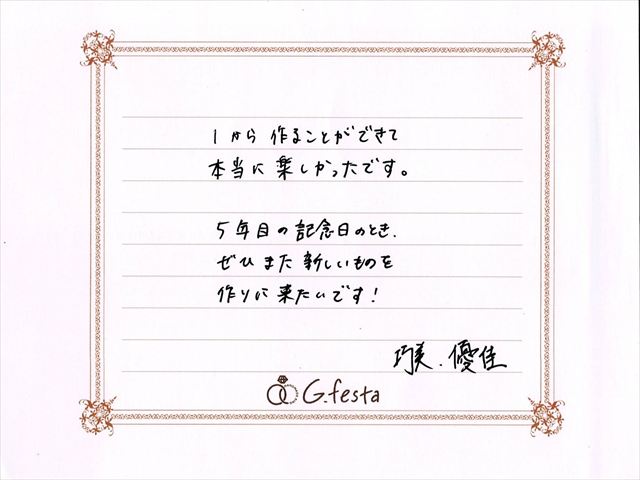 1から作ることができて
本当に楽しかったです。
5年目の記念日のとき、
ぜひまた新しいものを
作りに来たいです!
巧美、優佳
G.festa